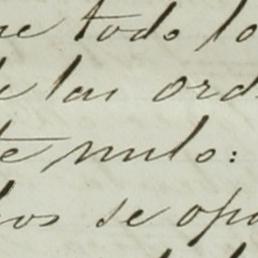 ue todo lo
e las ord
te nulo:
los se opo